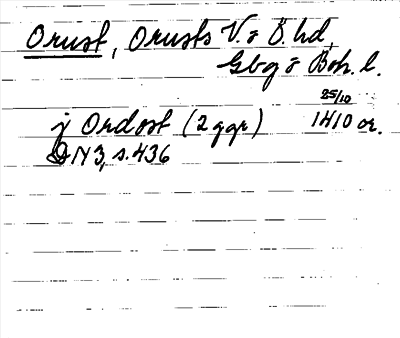 Orust, Orusts V. o Ö. hd,
Gbg o Boh. l.
j Ordost (2 ggr) 25/10 1410 or.
DN 3, s. 436